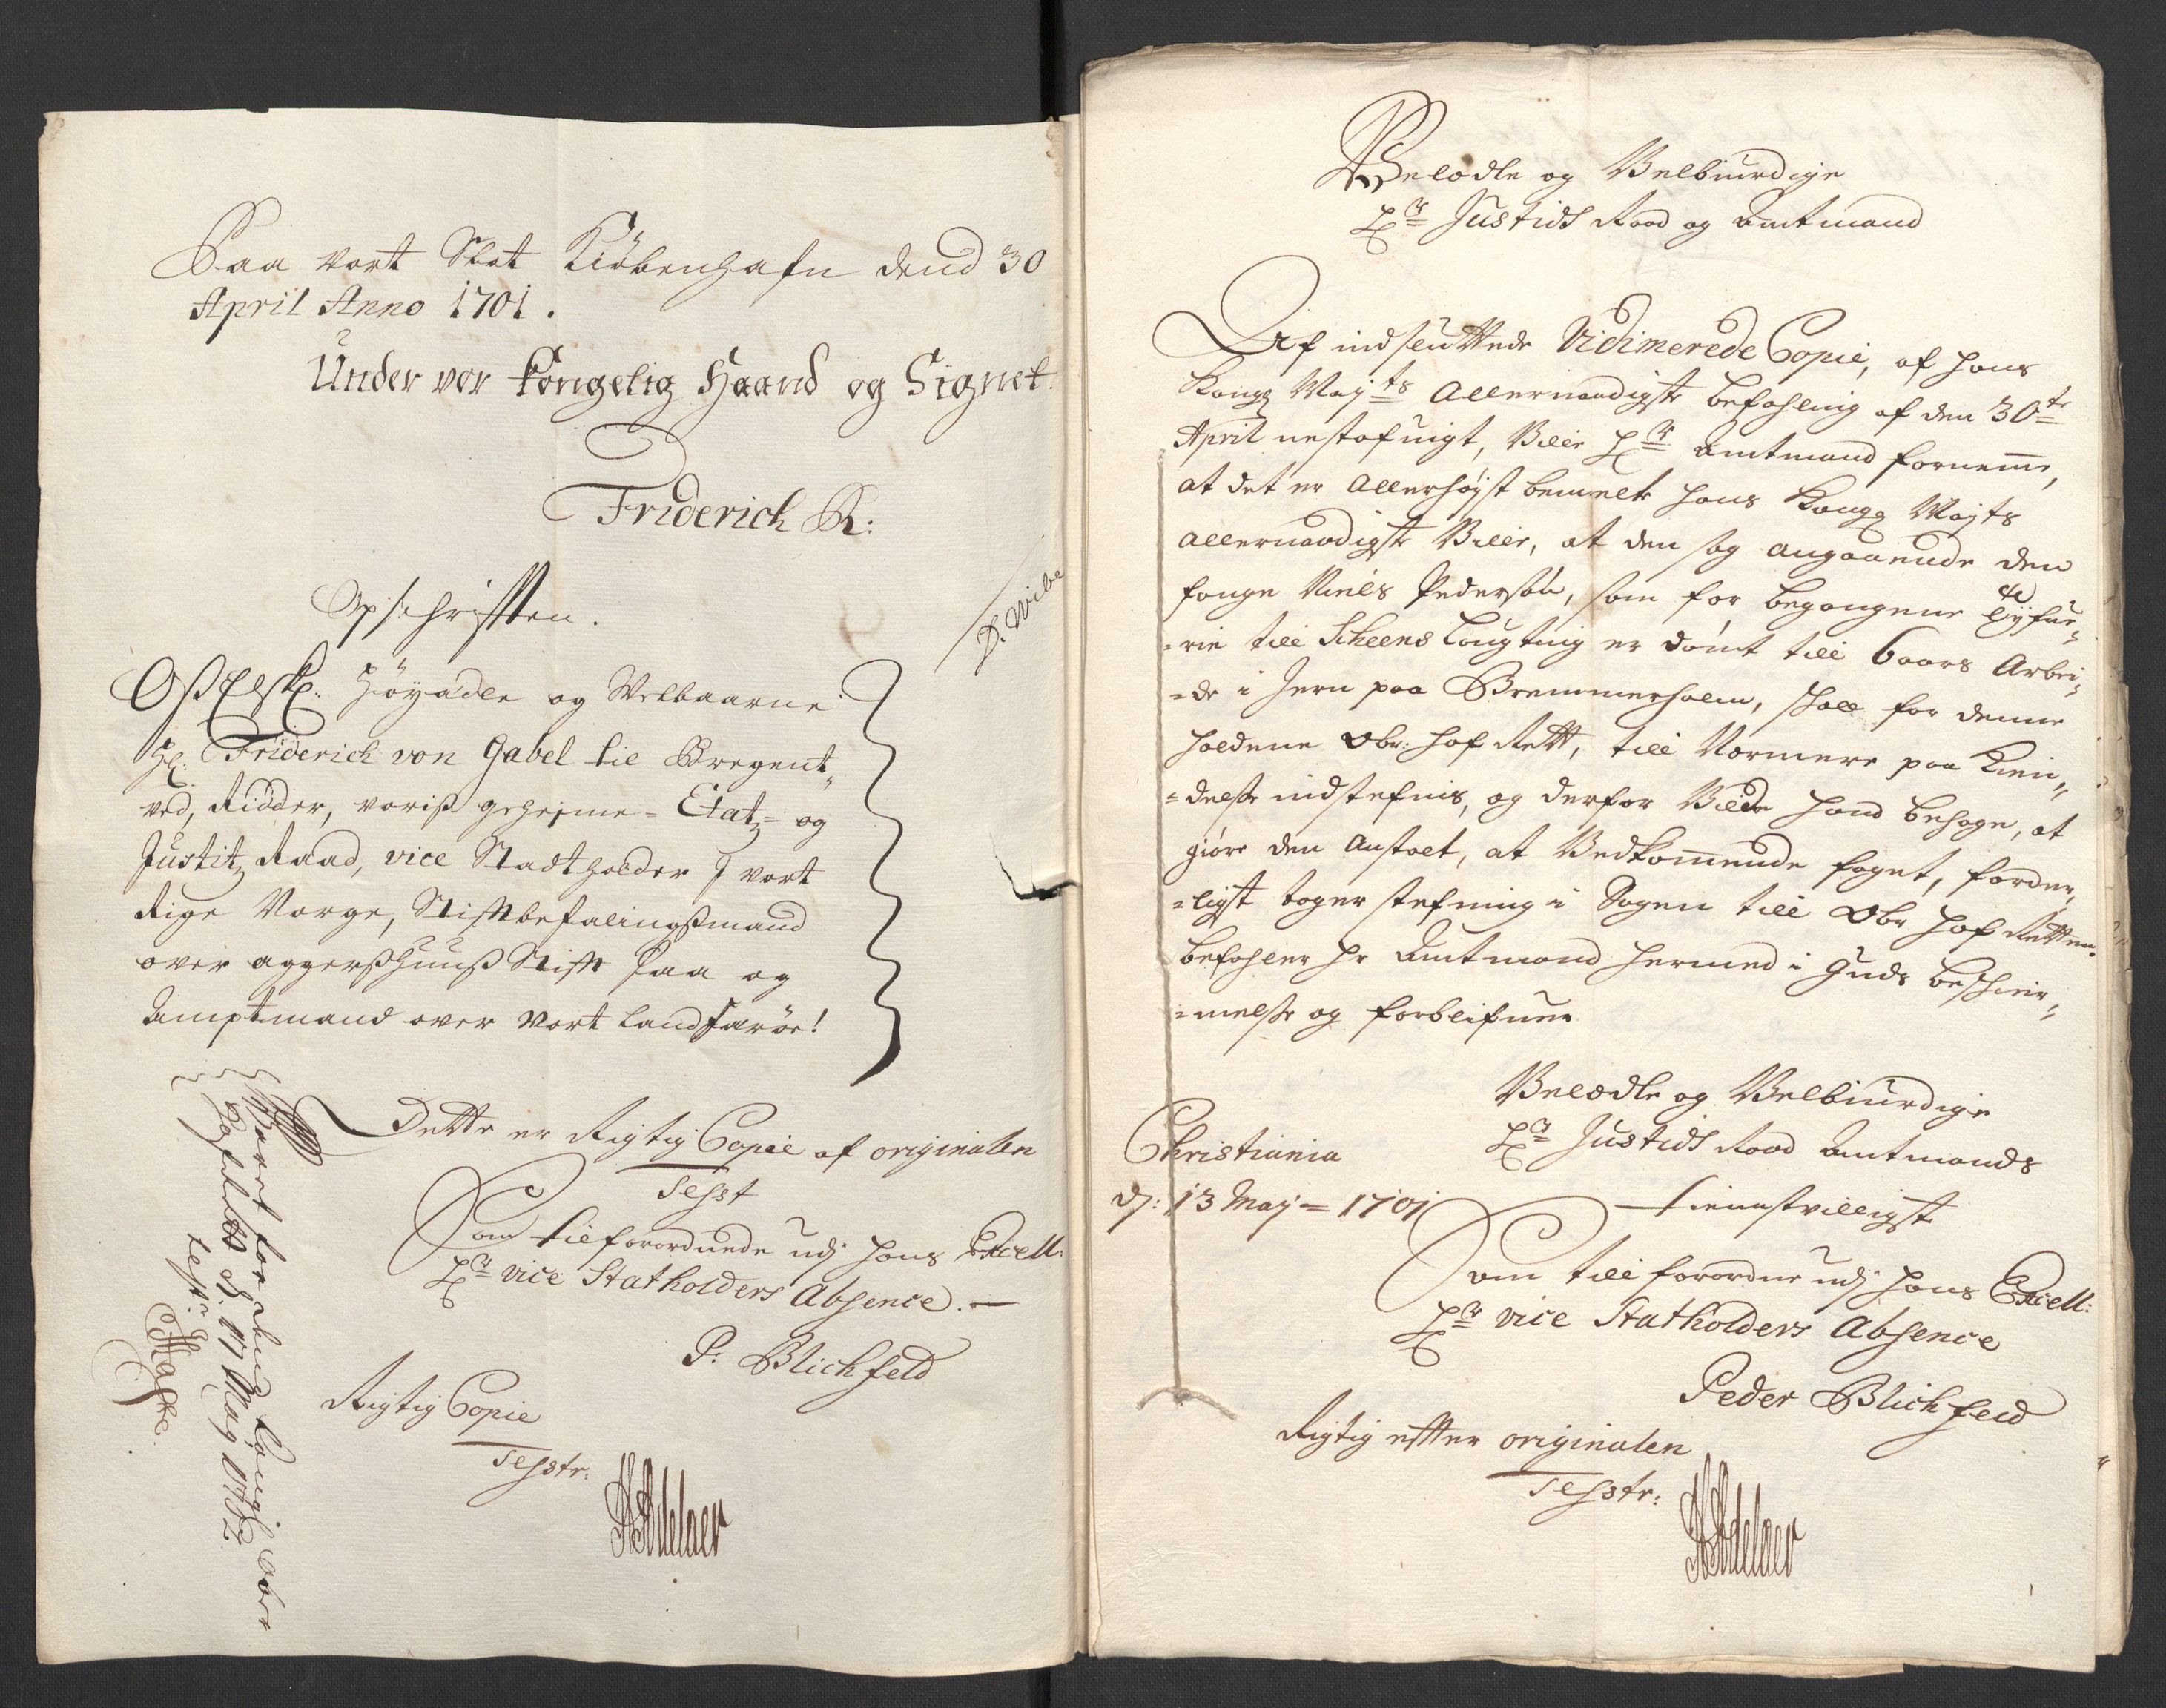 Paa vort Slot Kiöbenhafn dend 30
April Anno 1701.
Under vor Kongelig Haand og Signet.
Friderich R:
D. Wibe
Opschrifften.
Oß Elskl: Höyædle og Welbaarne
Hl: Friderich von Gabel til Bregent„
ved, Ridder, voris geheime= Etatz= og
Justitz Raad, vice Stadtholder J vort
Rige Norge, Stifftbefalingßmand
over aggerßhuuß Stifft saa og
Amptmand over vort land Farøe!
Dette er Rigtig Copie af originalen
Testr
Som tilforordnede udj hans Excell:
Hr vice Statholders Absence.—
P: Blichfeld
Rigtig Copie
Testr:
HAdelaer
lest for Retten
d: 17 Maj 1702
test:
Velædle og Velbiurdige
Hr Justids Raad og Amtmand
Af indsluttede Vidimerede Copie, af hans
Kongl Mayts Allernaadigste befahling af den 30te
April nestafvigt, Ville Hr Amtmand fornemme,
at det er Allerhøyst bemelte hans Kongl Mayts
Allernaadigste Villie, at den sag angaaende den
fange Niels Pedersøn, som for begangene tyfue„
=rie till Scheens Laugting er dömt till 6 aars Arbei„
=de i Jern paa Bremmerholm, skall for denne
holdene Obr: hof Rett, till Nærmere paa Kien„
=delse indstefnis, og derfor Vilde hand behage, at
giøre den anstalt, at Vedkommende foget, forder„
=ligst tager stefning i Sagen till Obr hof Retten.
befahler Hr Amtmand hermed i Guds beschier„
=melse og forblifuer
Velædle og Velbiurdige
Hr Justids Raad Amtmands
Christiania
d: 13 Maj= 1701
tienstvilligste
Som till forordne udj hans Excell:
Hr vice Statholders Absence
Peder Blichfeld
Rigtig efter originalen
Testr:
HAdelaer